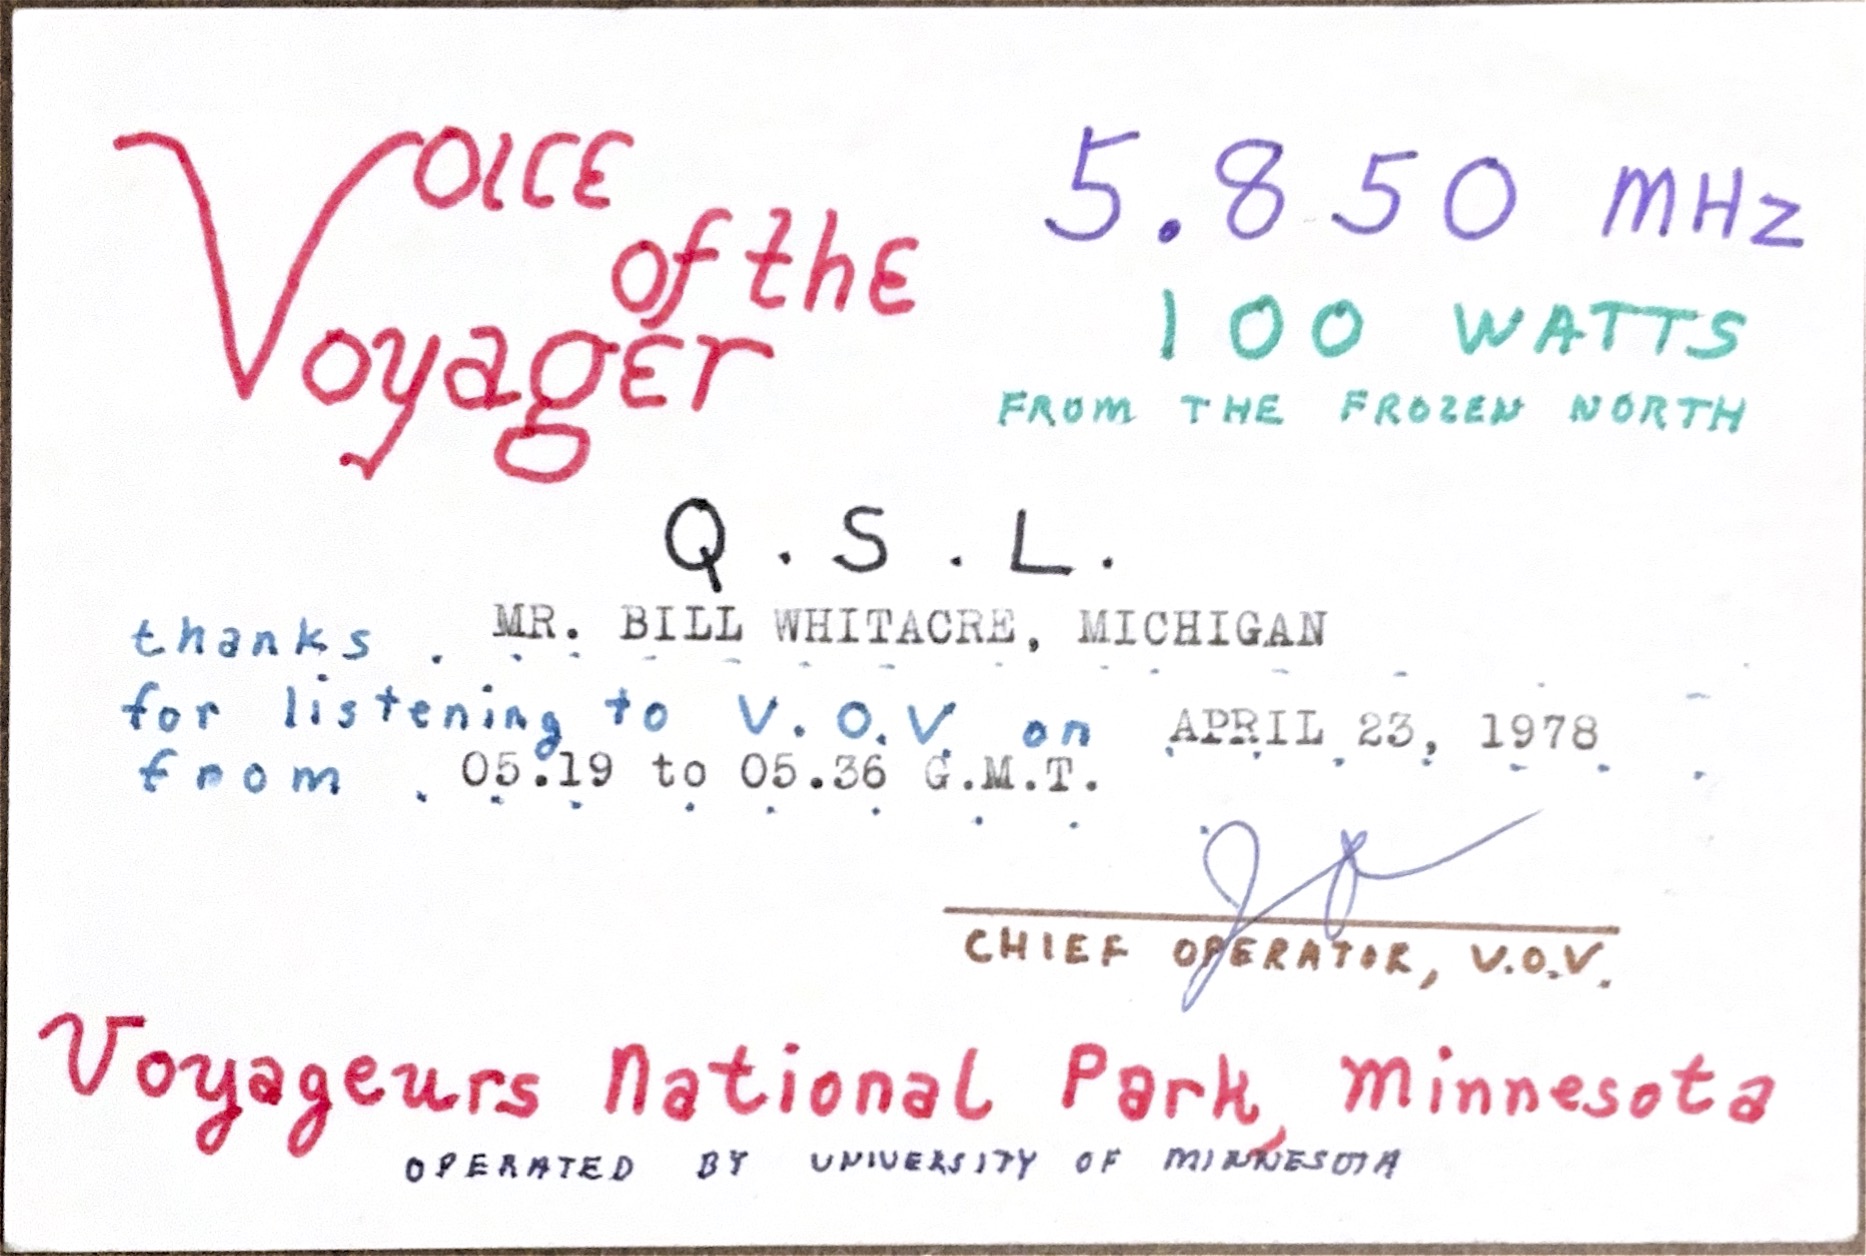 VOICE
of the
Voyager
5.850 MHz
100 WATTS
FROM THE FROZEN NORTH
Q.S.L.
thanks . MR. BILL WHITACRE, MICHIGAN
for listening to V.O.V. on APRIL 23, 1978
from . 05.19 to 05.36 G.M.T.
CHIEF OPERATOR, V.O.V.
Voyageurs National Park, Minnesota
OPERATED BY UNIVERSITY OF MINNESOTA